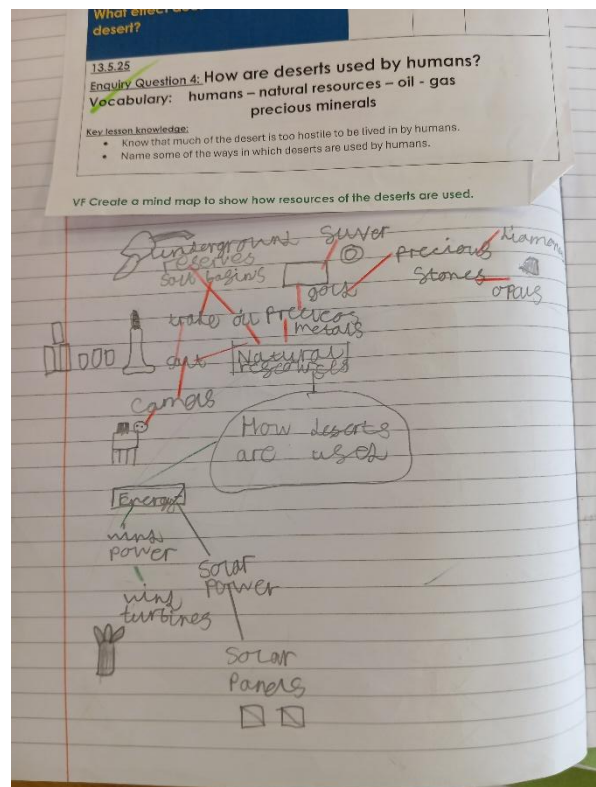 What effect
desert?
13.5.25
Enquiry Question 4: How are deserts used by humans?
Vocabulary: humans – natural resources – oil - gas
precious minerals
Key lesson knowledge:
• Know that much of the desert is too hostile to be lived in by humans.
• Name some of the ways in which deserts are used by humans.
VF Create a mind map to show how resources of the deserts are used.
underground
reserves
salt basins
silver
gold
precious
stones
opals
trade oil
metals
Natural
camels
How deserts
are used
Energy
wind
power
solar
power
wind
turbines
Solar
Panels